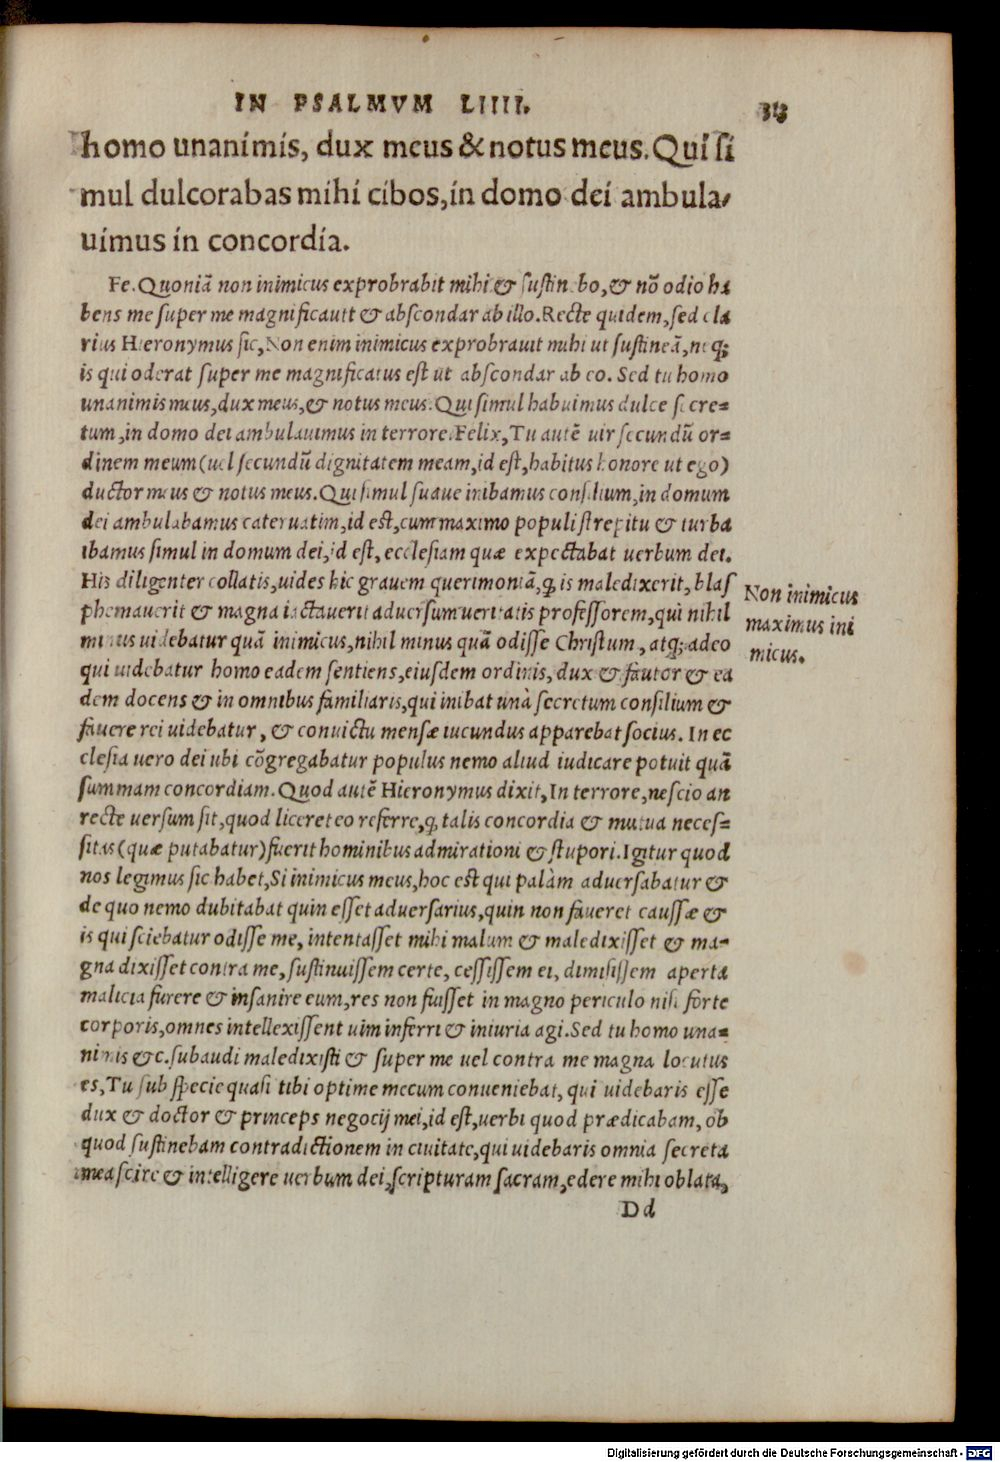 IN PSALMVM LIIII.
homo unanimis, dux meus & notus meus. Qui si
mul dulcorabas mihi cibos, in domo dei ambula/
uimus in concordia.
Fe. Quoniā non inimicus exprobrabit mihi & sustinebo, & nō odio ha
bens me super me magnificauit & abscondar ab illo. Recte quidem, sed cla
rius Hieronymus sic, Non enim inimicus exprobrauit mihi ut sustineā, neq;
is qui oderat super me magnificatus est ut abscondar ab eo. Sed tu homo
unanimis meus, dux meus, & notus meus. Qui simul habuimus dulce secre=
tum, in domo dei ambulauimus in terrore. Felix, Tu autē uir secundū or=
dinem meum (uel secundū dignitatem meam, id est, habitus honore ut ego)
ductor meus & notus meus. Qui simul suaue inibamus consilium, in domum
dei ambulabamus cateruatim, id est, cum maximo populi strepitu & turba
ibamus simul in domum dei, id est, ecclesiam quæ expectabat uerbum dei.
His diligenter collatis, uides hic grauem querimoniā, ꝙ is maledixerit, blas
phemauerit & magna iactauerit aduersum ueritatis professorem, qui nihil
minus uidebatur quā inimicus, nihil minus quā odisse Christum, atq; adeo
qui uidebatur homo eadem sentiens, eiusdem ordinis, dux & fautor & ea
dem docens & in omnibus familiaris, qui inibat unà secretum consilium &
fauere rei uidebatur, & conuictu mensæ iucundus apparebat socius. In ec
clesia uero dei ubi cōgregabatur populus nemo aliud iudicare potuit quā
summam concordiam. Quod autē Hieronymus dixit, In terrore, nescio an
recte uersum sit, quod liceret eo referre, ꝙ talis concordia & mutua neces=
sitas (quæ putabatur) fuerit hominibus admirationi & stupori. Igitur quod
nos legimus sic habet, Si inimicus meus, hoc est qui palàm aduersabatur &
de quo nemo dubitabat quin esset aduersarius, quin non faueret caussæ &
is qui sciebatur odisse me, intentasset mihi malum & maledixisset & ma=
gna dixisset contra me, sustinuissem certe, cessissem ei, dimisissem aperta
malicia furere & insanire eum, res non fuisset in magno periculo nisi forte
corporis, omnes intellexissent uim inferri & iniuria agi. Sed tu homo una=
nimis &c. subaudi maledixisti & super me uel contra me magna locutus
es, Tu sub specie quasi tibi optime mecum conueniebat, qui uidebaris esse
dux & doctor & princeps negocij mei, id est, uerbi quod prædicabam, ob
quod sustinebam contradictionem in ciuitate, qui uidebaris omnia secreta
mea scire & intelligere uerbum dei, scripturam sacram, edere mihi oblata,
Dd
Non inimicus
maximus ini
micus.
Digitalisierung gefördert durch die Deutsche Forschungsgemeinschaft - DFG